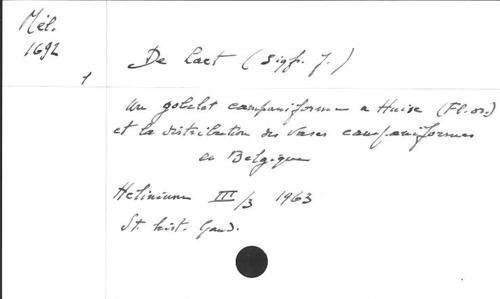 Mél.
1692
1
De Laet (Sigfr. J.)
Un gobelet campaniforme a Huise (Fl. or.)
et la distribution des vases campaniformes
en Belgique
Helinium III/3 1963
St. hist. Gand.